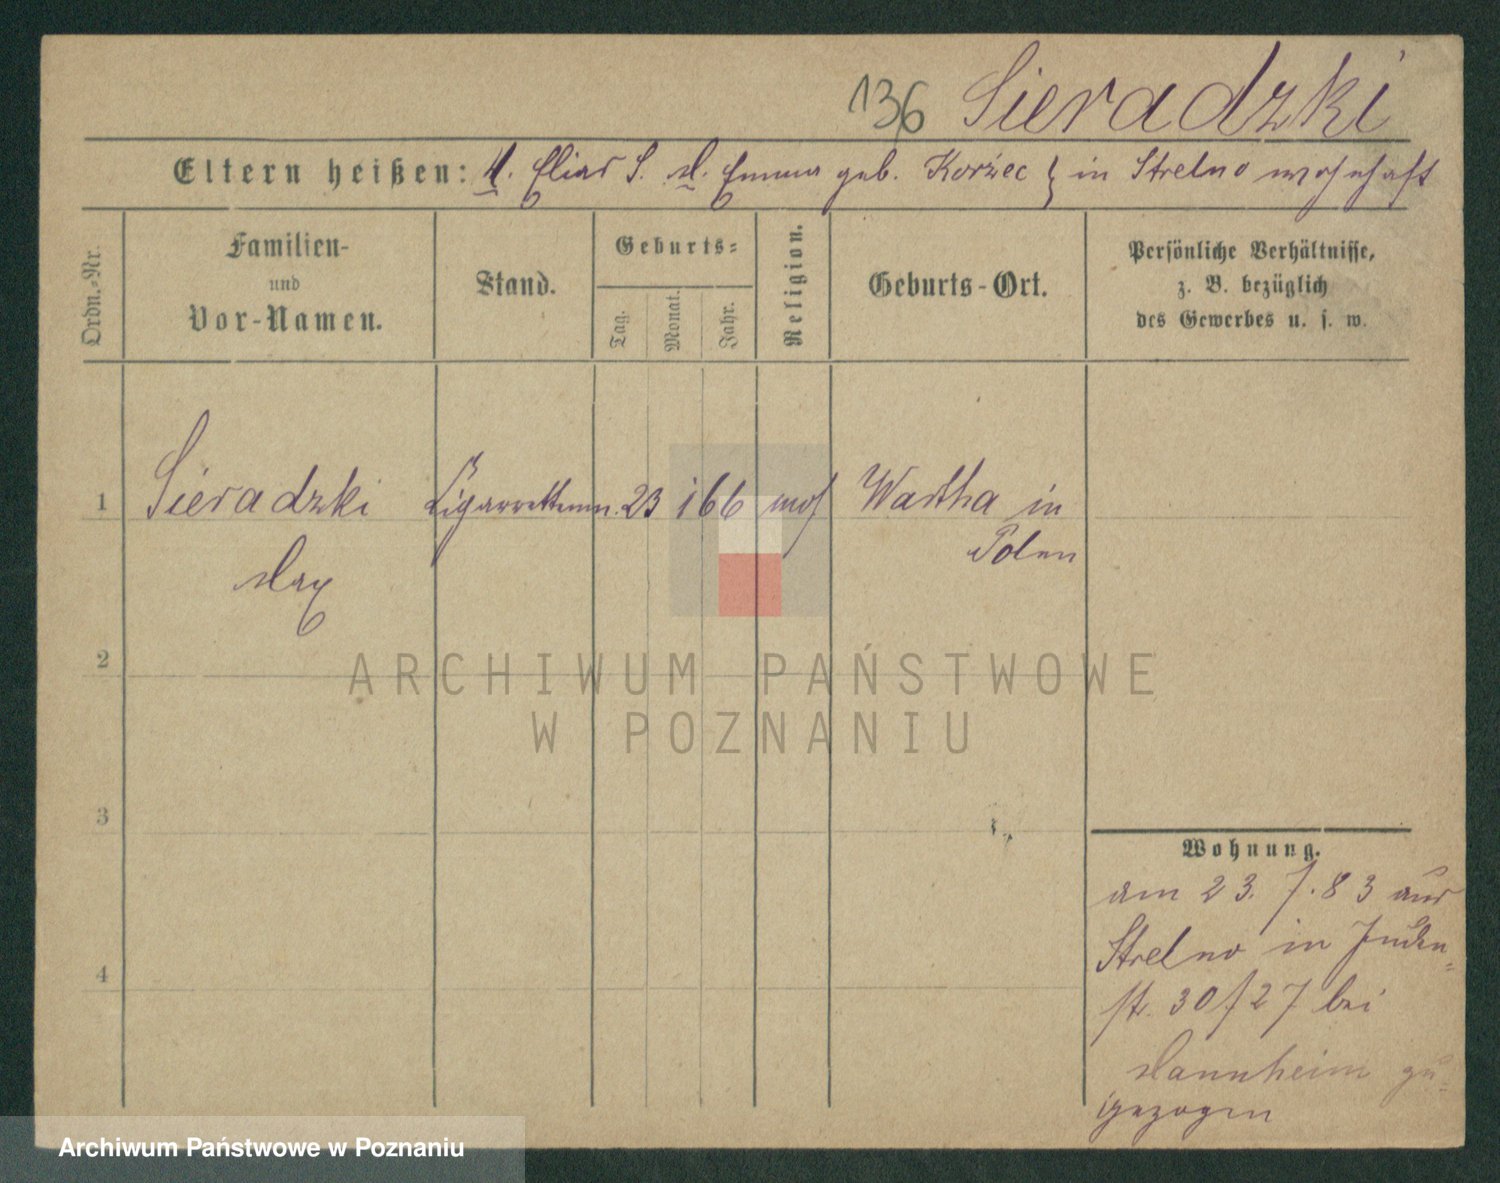 136 Sieradzki
Eltern heißen: V. Elias S. M. Emma geb. Korzec } in Strelno wohnhaft
Ordn.-Nr.
Familien-
und
Vor-Namen.
Stand.
Geburts-
Tag.
Monat.
Jahr.
Religion.
Geburts-Ort.
Persönliche Verhältnisse,
z. B. bezüglich
des Gewerbes u. s. w.
1 Sieradzki Cigarrettenm. 23 1 66 mos Wartha in
Polen
Max
2
ARCHIWUM PAŃSTWOWE
W POZNANIU
3
4
Wohnung.
am 23. 7. 83 aus
Strelno in Juden-
str. 30/27 bei
Mannheim zu-
gezogen
Archiwum Państwowe w Poznaniu